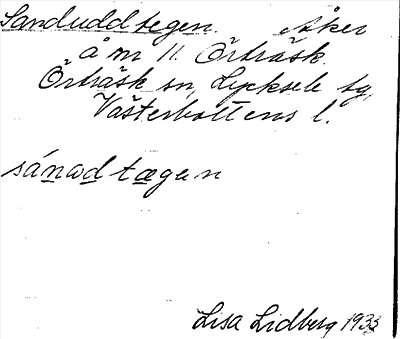 Sanduddtegen. Åker
å nr 11. Örträsk
Örträsk sn, Lycksele tg,
Västerbottens l.
sánɷd tægɛn
Lisa Lidberg 1933